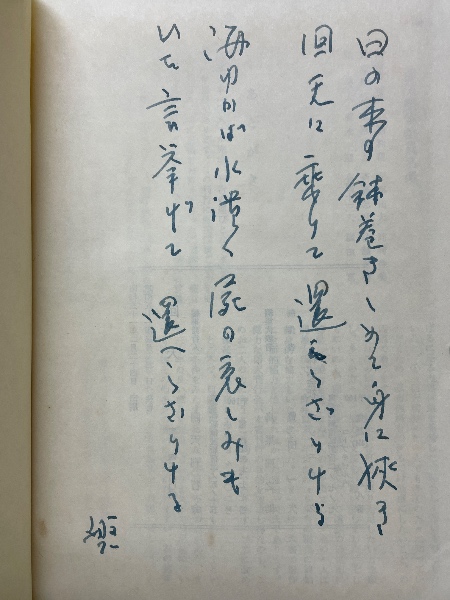 日の本の鉢巻きしめて身に狭き
回天に乗りて 還らざりける
海ゆかば水漬く屍の哀しみも
言挙げて 還へらざりける